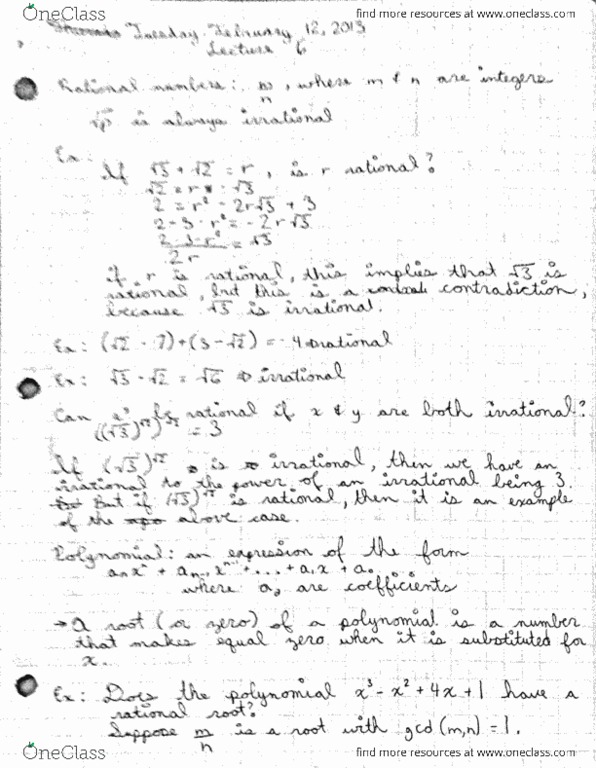 OneClass
find more resources at www.oneclass.com
Tuesday, February 12, 2013
Lecture 6
Rational numbers: m/n, where m & n are integers
√p is always irrational
Ex:
If √3 + √2 = r, is r rational?
√2 = r - √3
2 = r² - 2r√3 + 3
2 - 3 - r² = -2r√3
= √3
2r
if r is rational, this implies that √3 is
rational, but this is a contradiction,
because √3 is irrational.
Ex: (√2 - 7) + (3 - √2) = -4 ⇒ rational
Ex: √3 · √2 = √6 ⇒ irrational
Can x^y be rational if x & y are both irrational?
((√3)^√2)^√2 = 3
If (√3)^√2 is irrational, then we have an
irrational to the power of an irrational being 3.
But if (√3)^√2 is rational, then it is an example
of the above case.
Polynomial: an expression of the form
aₙxⁿ + aₙ₋₁xⁿ⁻¹ + ... + a₁x + a₀
where a are coefficients
→ a root (or zero) of a polynomial is a number
that makes equal zero when it is substituted for
x.
Ex: Does the polynomial x³ - x² + 4x + 1 have a
rational root?
Suppose m/n is a root with gcd(m,n) = 1.
OneClass
find more resources at www.oneclass.com